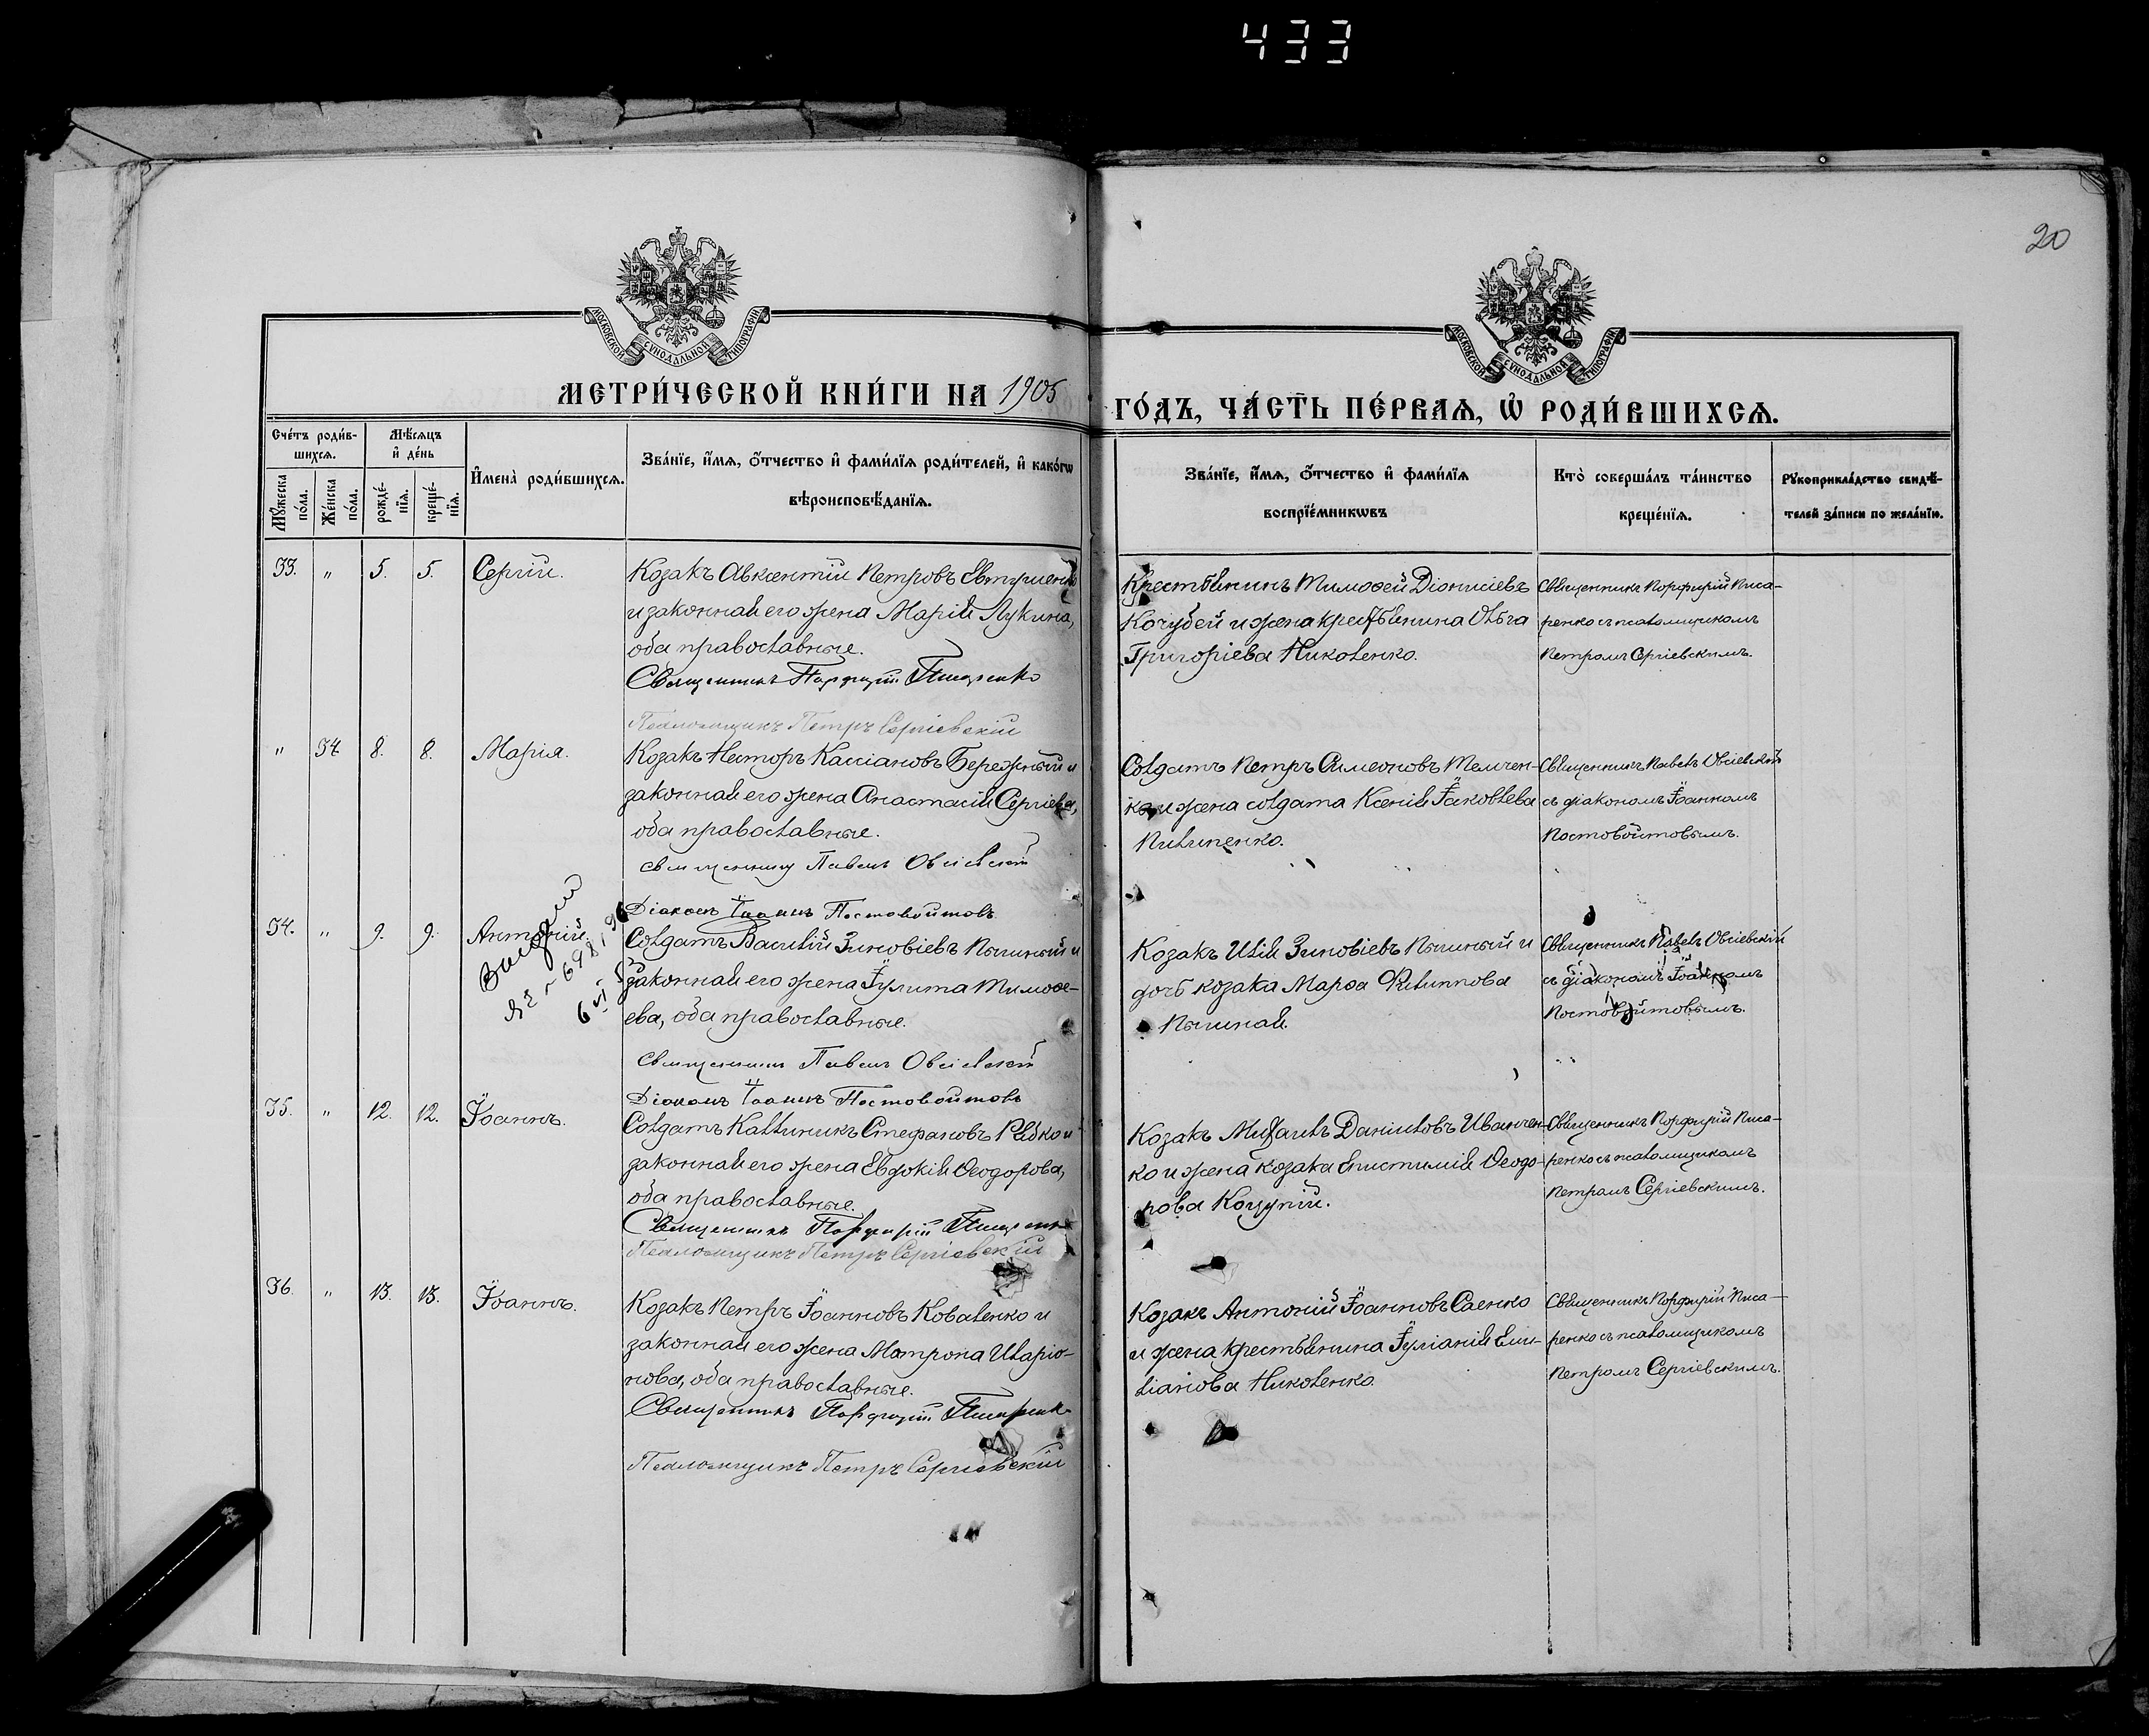 433
20
МОСКОВСКОЙ СѴНОДАЛЬНОЙ ТИПОГРАФІИ
МОСКОВСКОЙ СѴНОДАЛЬНОЙ ТИПОГРАФІИ
МЕТРИ́ЧЕСКОЙ КНИ́ГИ НА 1905
ГО́ДЪ, ЧА́СТЬ ПЕ́РВАѦ, Ѡ҆ РОДИ́ВШИХСѦ.
Сче́тъ роди́в-
шихсѧ.
Мѣ́сѧцъ
и҆ де́нь
Мꙋ́жеска
по́ла.
Же́нска
по́ла.
рожде́-
нїѧ.
креще́-
нїѧ.
И҆мена̀ роди́вшихсѧ.
Зва́нїе, и҆́мѧ, ѻ҆́тчество и҆ фами́лїѧ роди́телей, и҆ како́гѡ
вѣроисповѣ́данїѧ.
Зва́нїе, и҆́мѧ, ѻ҆́тчество и҆ фами́лїѧ
воспрїе́мникѡвъ
Кто̀ соверша́лъ та́инство
креще́нїѧ.
Рꙋкоприкла́дство свидѣ́-
телей за́писи по жела́нїю.
33. " 5. 5. Сергій.
Козакъ Авксентій Петровъ
и законная его жена Марія Лукина,
оба православные.
Священникъ Порфирій Писаренко
Псаломщикъ Петръ Сергіевскій
Крестьянинъ Тимоѳей Діонисіевъ
Кочубей и жена крестьянина Ольга
Григоріева Николенко.
Священникъ Порфирій Писа-
ренко съ псаломщикомъ
Петромъ Сергіевскимъ.
" 34 8. 8. Марія.
Козакъ Несторъ Кассіановъ Бережный и
законная его жена Анастасія Сергіева,
оба православные.
Священникъ Павелъ Овсіевскій
Діаконъ Іоаннъ Постовойтовъ
Солдатъ Петръ Симеоновъ Темчен-
ко и жена солдата Ксенія Іаковлева
Пилипенко.
Священникъ Павелъ Овсіевскій
съ діакономъ Іоанномъ
Постовойтовымъ.
34. " 9. 9. Антоній.
Солдатъ Василій Зиновіевъ Пышный и
законная его жена Іулита Тимоѳе-
ева, оба православные.
Священникъ Павелъ Овсіевскій
Діаконъ Іоаннъ Постовойтовъ
Козакъ Илія Зиновіевъ Пышный и
дочь козака Марѳа Филиппова
Пышная.
Священникъ Павелъ Овсіевскій
съ діакономъ Іоанномъ
Постовойтовымъ.
35. " 12. 12. Іоаннъ.
Солдатъ Каллиникъ Стефановъ Рябко и
законная его жена Евдокія Ѳеодорова,
оба православные.
Священникъ Порфирій Писаренко
Псаломщикъ Петръ Сергіевскій
Козакъ Михаилъ Даніиловъ Иванчен-
ко и жена козака Епистимія Ѳеодо-
рова Коцупій.
Священникъ Порфирій Писа-
ренко съ псаломщикомъ
Петромъ Сергіевскимъ.
36. " 13. 13. Іоаннъ.
Козакъ Петръ Іоанновъ Коваленко и
законная его жена Матрона Иларіо-
нова, оба православные.
Священникъ Порфирій Писаренко
Псаломщикъ Петръ Сергіевскій
Козакъ Антоній Іоанновъ Саенко
и жена крестьянина Іуліанія Еми-
ліанова Николенко.
Священникъ Порфирій Писа-
ренко съ псаломщикомъ
Петромъ Сергіевскимъ.